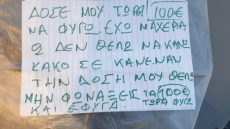 ΔΟΣΕ ΜΟΥ ΤΩΡΑ 100€
ΝΑ ΦΥΓΩ ΕΧΩ ΜΑΧΕΡΑ
Ω ΔΕΝ ΘΕΛΩ ΝΑ ΚΑΝΩ
ΚΑΚΟ ΣΕ ΚΑΝΕΝΑΝ
ΤΗΝ ΔΟΣΗ ΜΟΥ ΘΕΛΩ
ΜΗΝ ΦΩΝΑΞΕΙΣ ΤΑ 100€
ΚΑΙ ΕΦΥΓΑ ΤΩΡΑ ΦΥΓΩ